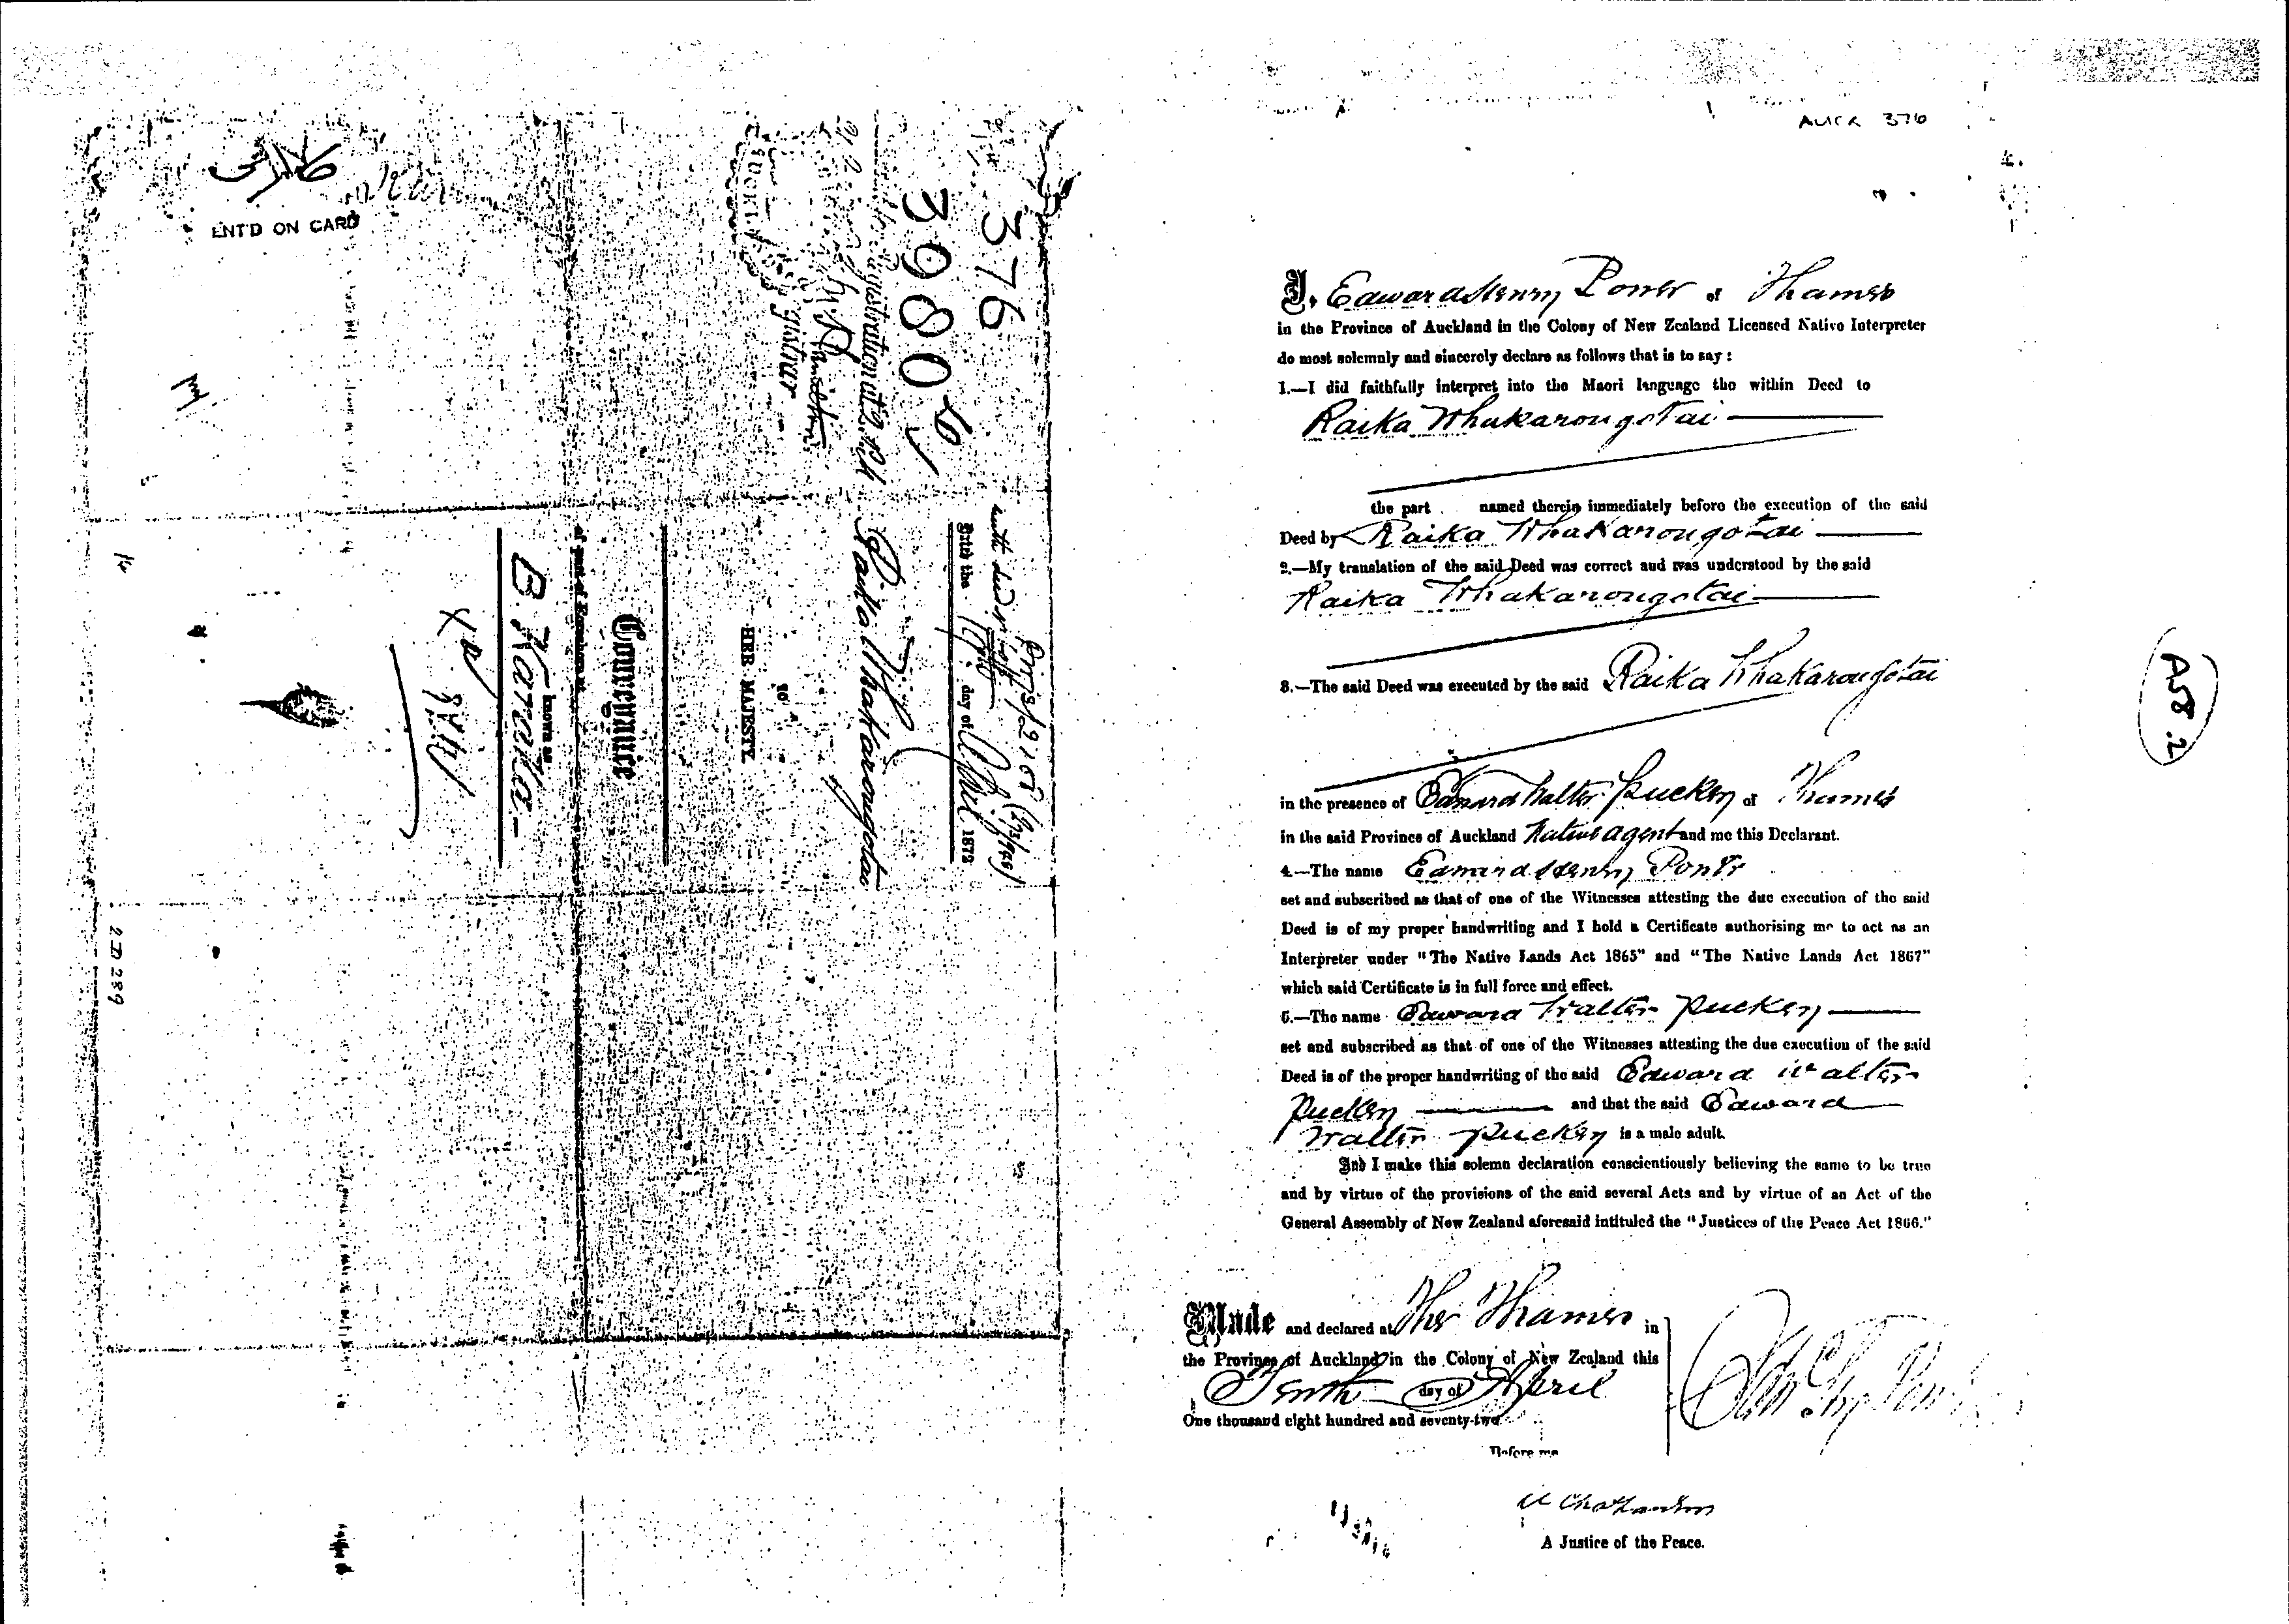 AUCK 376
ENT'D ON CARD
376
39805
Dated the 10th day of April 1872
Raika Whakarongotai
TO
HER MAJESTY.
Conveyance
of part of
known as
B. Karaka
2 D 289
I, Edward Henry Power of Thames
in the Province of Auckland in the Colony of New Zealand Licensed Native Interpreter
do most solemnly and sincerely declare as follows that is to say :
1.—I did faithfully interpret into the Maori language the within Deed to
Raika Whakarongotai
the part named therein immediately before the execution of the said
Deed by Raika Whakarongotai
2.—My translation of the said Deed was correct and was understood by the said
Raika Whakarongotai
3.—The said Deed was executed by the said Raika Whakarongotai
in the presence of Edward Walter Puckey of Thames
in the said Province of Auckland Native Agent and me this Declarant.
4.—The name Edward Henry Power
set and subscribed as that of one of the Witnesses attesting the due execution of the said
Deed is of my proper handwriting and I hold a Certificate authorising me to act as an
Interpreter under "The Native Lands Act 1865" and "The Native Lands Act 1867"
which said Certificate is in full force and effect.
5.—The name Edward Walter Puckey
set and subscribed as that of one of the Witnesses attesting the due execution of the said
Deed is of the proper handwriting of the said Edward Walter
Puckey and that the said Edward
Walter Puckey is a male adult.
And I make this solemn declaration conscientiously believing the same to be true
and by virtue of the provisions of the said several Acts and by virtue of an Act of the
General Assembly of New Zealand aforesaid intituled the "Justices of the Peace Act 1866."
Made and declared at The Thames in
the Province of Auckland in the Colony of New Zealand this
Tenth day of April
One thousand eight hundred and seventy-two
Before me
A Justice of the Peace.
A58.2